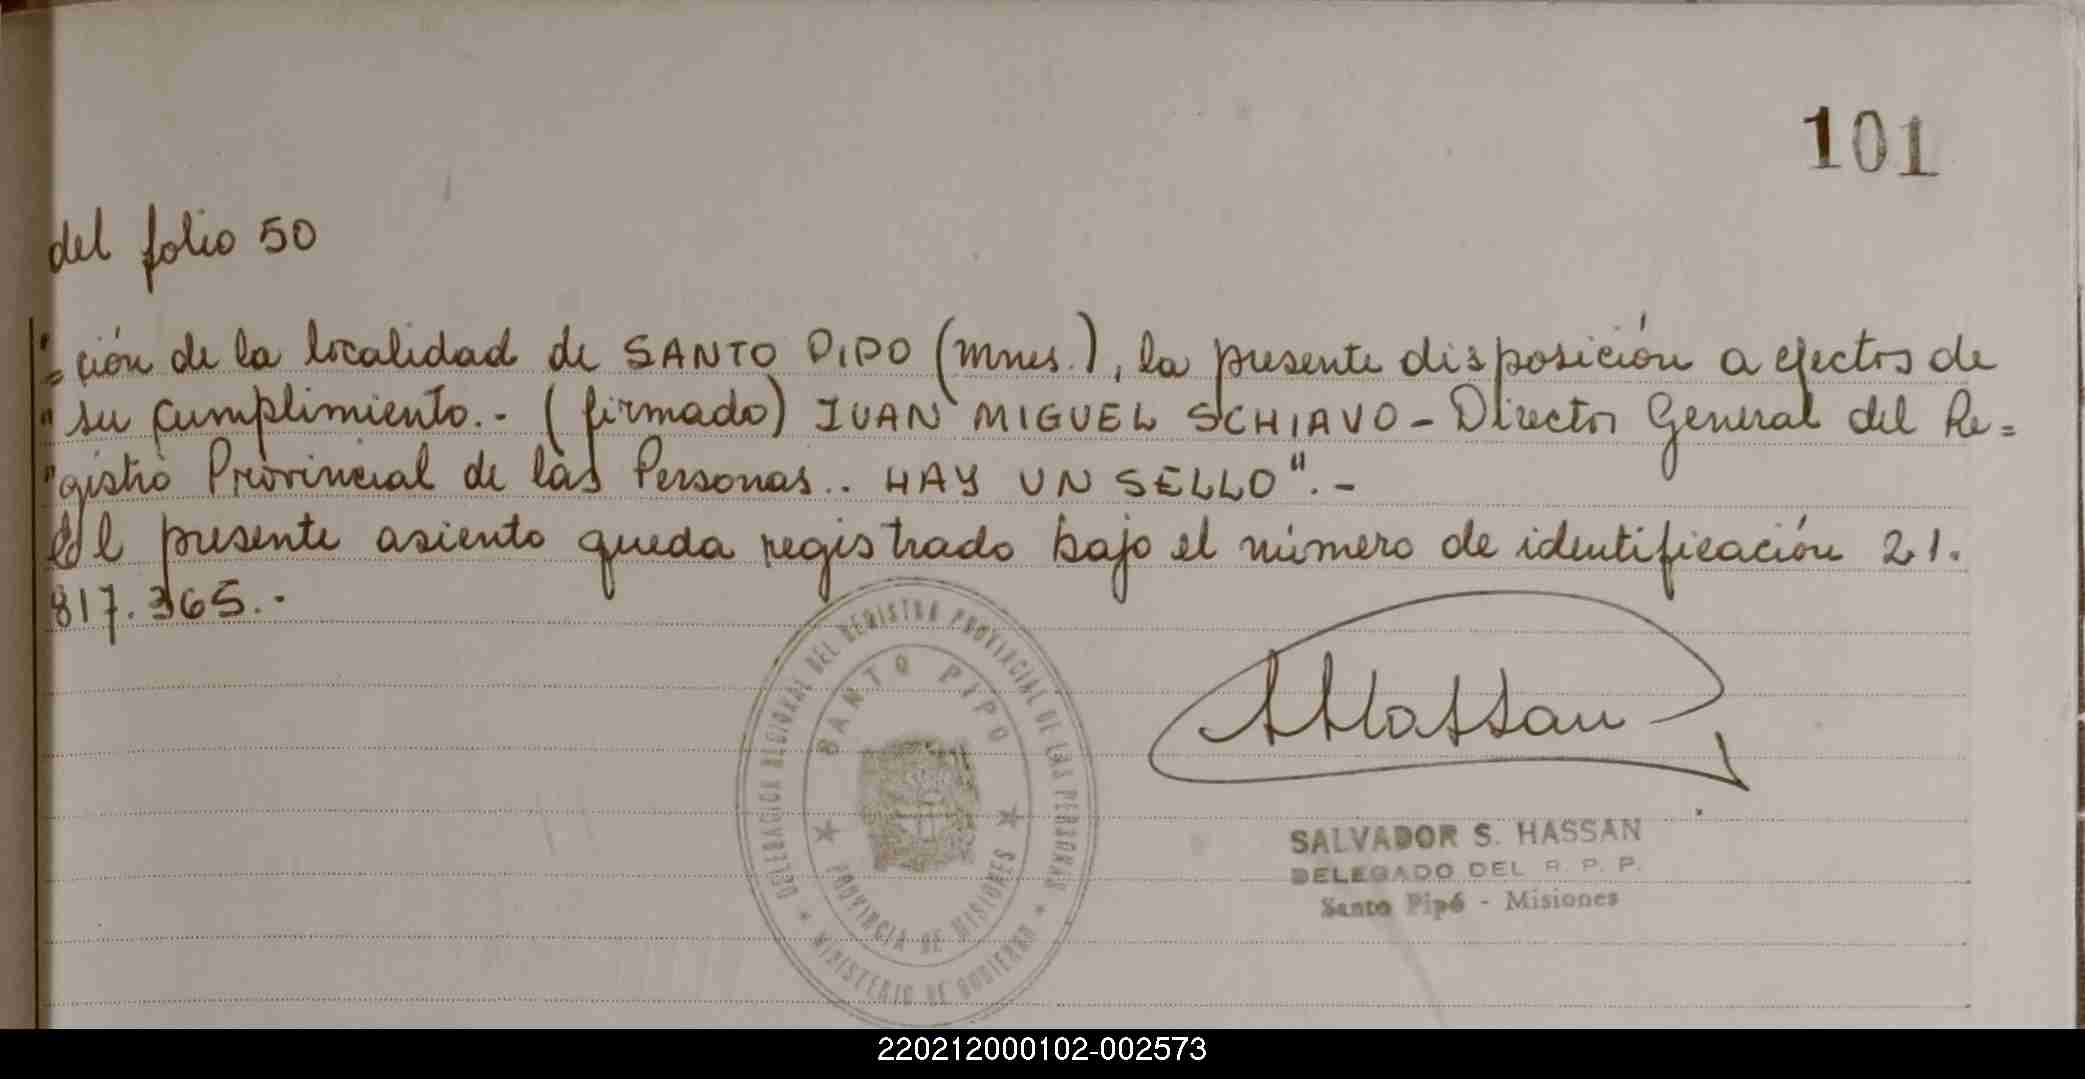 101
del folio 50
"=ción de la localidad de SANTO PIPO (Mnes.), la presente disposición a efectos de
" su cumplimiento.- (firmado) JUAN MIGUEL SCHIAVO - Director General del Re=
"gistro Provincial de las Personas.. HAY UN SELLO".-
El presente asiento queda registrado bajo el número de identificación 21.
817.365.-
DELEGACION REGIONAL DEL REGISTRO PROVINCIAL DE LAS PERSONAS
SANTO PIPO
PROVINCIA DE MISIONES
MINISTERIO DE GOBIERNO
SHassan
SALVADOR S. HASSAN
DELEGADO DEL R. P. P.
Santo Pipó - Misiones
220212000102-002573